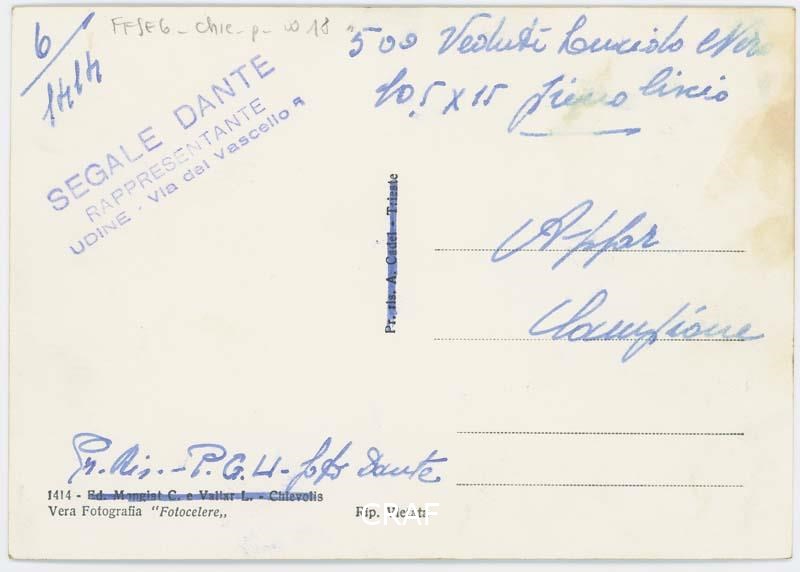 6
1414
FFSEG - Chie - p - 18
500 Vedute Lucido Nero
10,5 X 15 liscio
SEGALE DANTE
RAPPRESENTANTE
UDINE - Via del Vascello
Pr. ris. A. Cadel - Trieste
Appar
Campione
Pr. Ris. - P.G.U - foto Dante
1414 - Ed. Mongiat C. e Vallar L. - Chievolis
Vera Fotografia "Fotocelere„
Rip. Vietata
CRAF